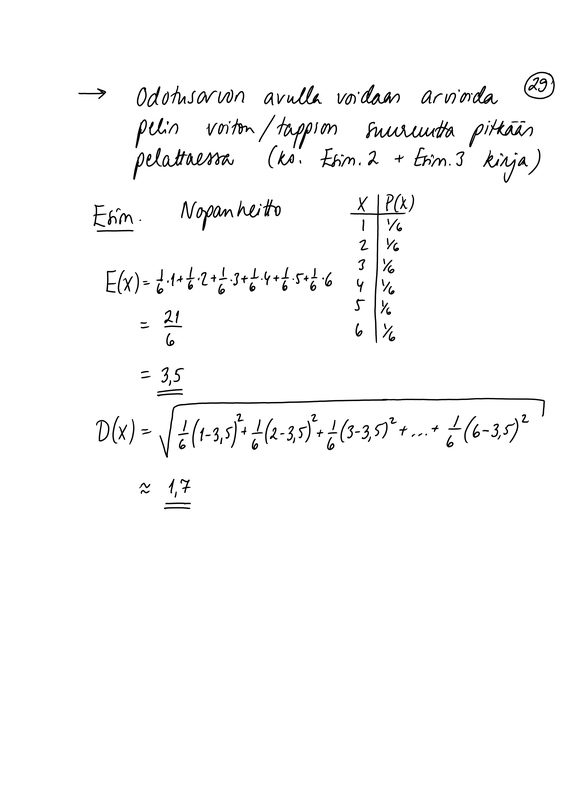 → Odotusarvon avulla voidaan arvioida (29)
pelin voiton/tappion suuruutta pitkään
pelattaessa (ks. Esim. 2 + Esim. 3 kirja)
Esim. Nopanheitto
X | P(X)
1 | 1/6
2 | 1/6
3 | 1/6
4 | 1/6
5 | 1/6
6 | 1/6
E(X) = 1/6·1+1/6·2+1/6·3+1/6·4+1/6·5+1/6·6
= 21/6
= 3,5
D(X) = √(1/6(1-3,5)²+1/6(2-3,5)²+1/6(3-3,5)²+...+1/6(6-3,5)²)
≈ 1,7